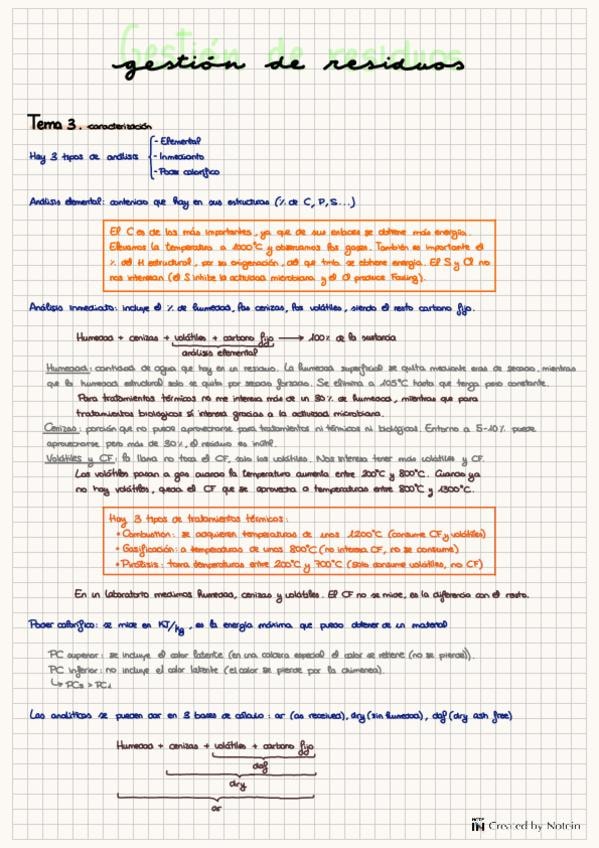 Gestión de residuos
gestión de residuos
Tema 3. caracterización
- Elemental
Hay 3 tipos de análisis - Inmediato
- Poder calorífico
Análisis elemental: contenido que hay en sus estructuras (% de C, P, S...)
El C es de los más importantes, ya que de sus enlaces se obtiene más energía.
Elevamos la temperatura a 1000°C y observamos los gases. También es importante el
% del H estructural, por su origenación, del que tmb se obtiene energía. El S y Cl no
nos interesan (el S inhibe la actividad microbiana y el Cl produce Fouling).
Análisis inmediato: incluye el % de humedad, las cenizas, los volátiles, siendo el resto carbono fijo.
Humedad + cenizas + volátiles + carbono fijo → 100% de la sustancia
análisis elemental
Humedad: cantidad de agua que hay en un residuo. La humedad superficial se quita mediante eras de secado, mientras
que la humedad estructural solo se quita por secado forzado. Se elimina a 105°C hasta que tenga peso constante.
Para tratamientos térmicos no me interesa más de un 30% de humedad, mientras que para
tratamientos biológicos sí interesa gracias a la actividad microbiana.
Cenizas: porción que no puede aprovecharse para tratamientos ni térmicos ni biológicos. Entorno a 5-10% puede
aprovecharse pero más de 30%, el residuo es inútil.
Volátiles y CF: la llama no toca el CF, solo los volátiles. Nos interesa tener más volátiles y CF.
Los volátiles pasan a gas cuando la temperatura aumenta entre 200°C y 800°C. Cuando ya
no hay volátiles, queda el CF que se aprovecha a temperaturas entre 800°C y 1300°C.
Hay 3 tipos de tratamientos térmicos:
• Combustión: se adquieren temperaturas de unos 1200°C (consume CF y volátiles)
• Gasificación: a temperaturas de unos 800°C (no interesa CF, no se consume)
• Pirólisis: toma temperaturas entre 200°C y 700°C (solo consume volátiles, no CF)
En un laboratorio medimos humedad, cenizas y volátiles. El CF no se mide, es la diferencia con el resto.
Poder calorífico: se mide en KJ/kg, es la energía máxima que puedo obtener de un material
PC superior: se incluye el calor latente (en una caldera especial el calor se retiene (no se pierde)).
PC inferior: no incluye el calor latente (el calor se pierde por la chimenea).
↳ PCs > PCi
Las analíticas se pueden dar en 3 bases de cálculo: ar (as received), dry (sin humedad), daf (dry ash free)
Humedad + cenizas + volátiles + carbono fijo
daf
dry
ar
Created by Notein